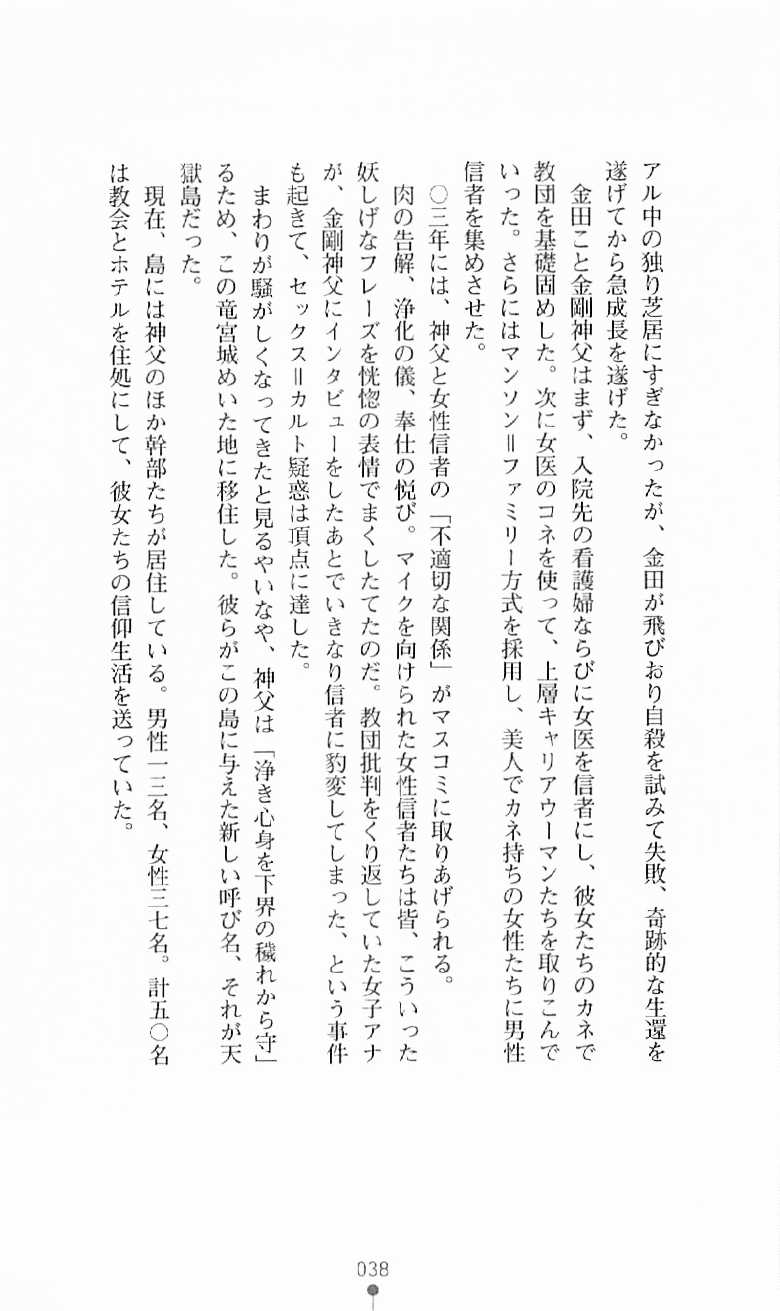 アル中の独り芝居にすぎなかったが、金田が飛びおり自殺を試みて失敗、奇跡的な生還を
遂げてから急成長を遂げた。
金田こと金剛神父はまず、入院先の看護婦ならびに女医を信者にし、彼女たちのカネで
教団を基礎固めした。次に女医のコネを使って、上層キャリアウーマンたちを取りこんで
いった。さらにはマンソン＝ファミリー方式を採用し、美人でカネ持ちの女性たちに男性
信者を集めさせた。
〇三年には、神父と女性信者の「不適切な関係」がマスコミに取りあげられる。
肉の告解、浄化の儀、奉仕の悦び。マイクを向けられた女性信者たちは皆、こういった
妖しげなフレーズを恍惚の表情でまくしたてたのだ。教団批判をくり返していた女子アナ
が、金剛神父にインタビューをしたあとでいきなり信者に豹変してしまった、という事件
も起きて、セックス＝カルト疑惑は頂点に達した。
まわりが騒がしくなってきたと見るやいなや、神父は「浄き心身を下界の穢れから守」
るため、この竜宮城めいた地に移住した。彼らがこの島に与えた新しい呼び名、それが天
獄島だった。
現在、島には神父のほか幹部たちが居住している。男性一三名、女性三七名。計五〇名
は教会とホテルを住処にして、彼女たちの信仰生活を送っていた。
038